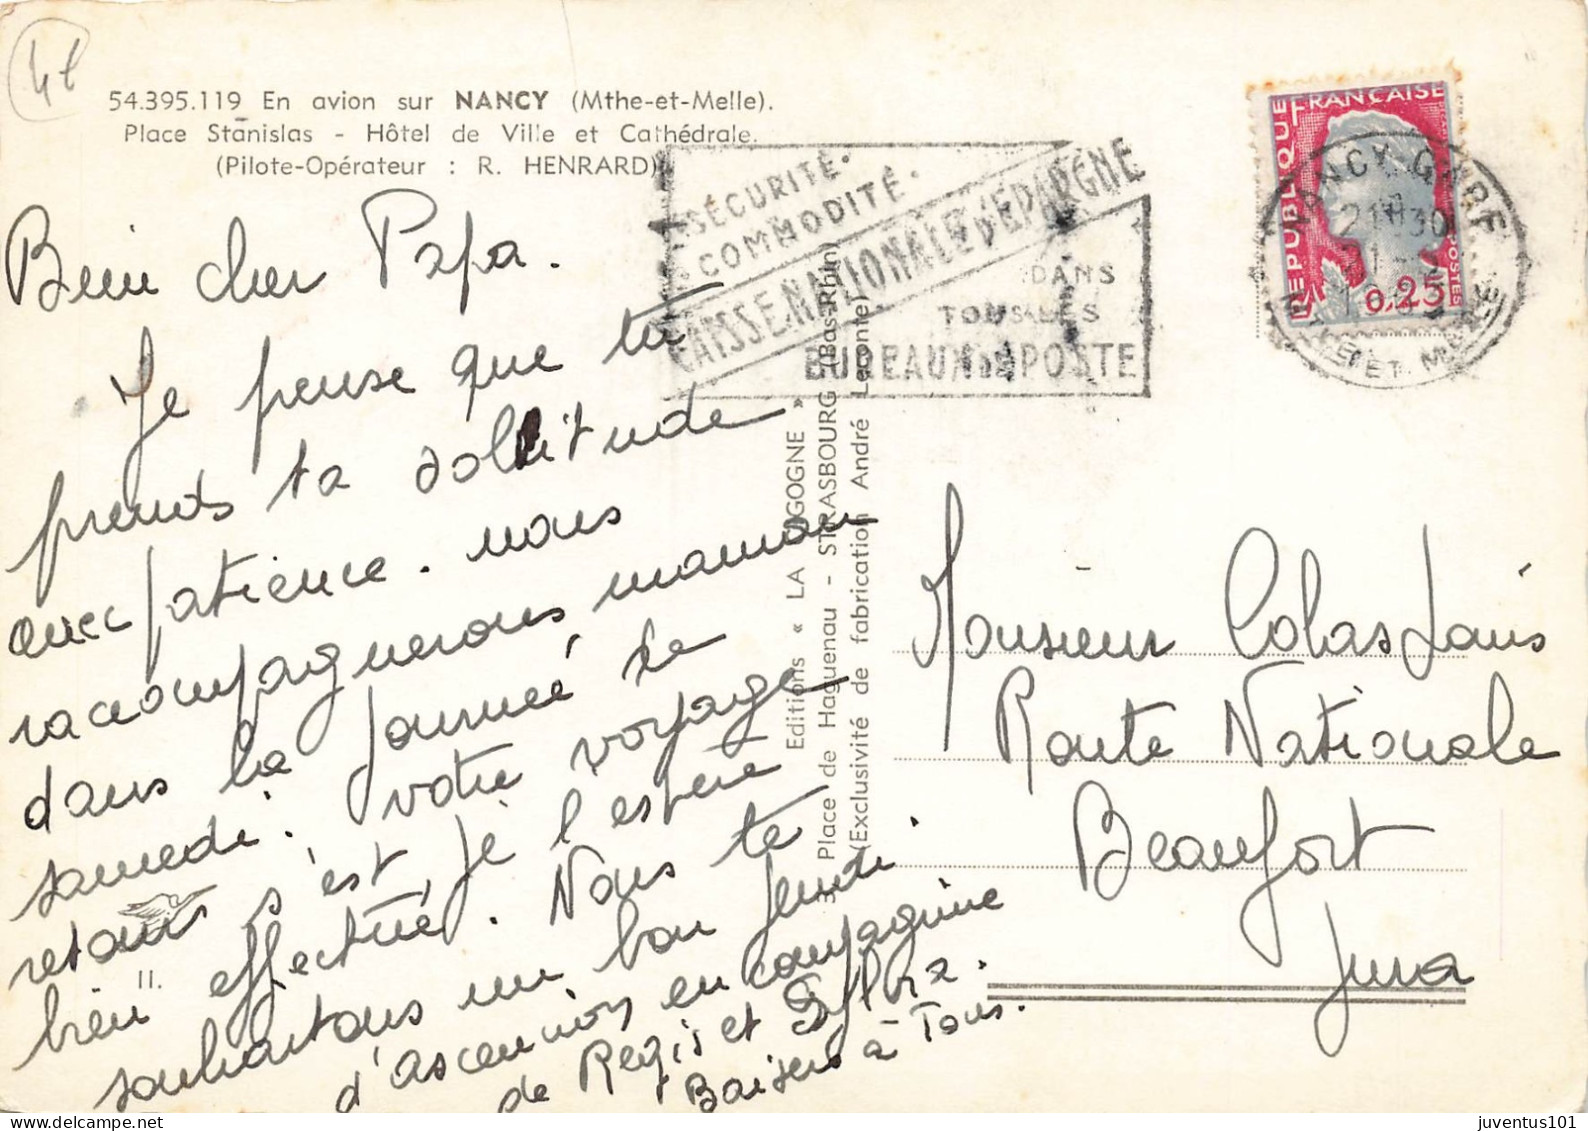 4e
54.395.119 En avion sur NANCY (Mthe-et-Melle).
Place Stanislas - Hôtel de Ville et Cathédrale.
(Pilote-Opérateur : R. HENRARD)
SÉCURITÉ.
COMMODITÉ.
CAISSE NATIONALE D'EPARGNE
DANS
TOUS LES
BUREAUX DE POSTE
REPUBLIQUE FRANÇAISE
POSTES
0,25
NANCY-GARE
21H30
Bien cher Papa.
Je pense que tu
prends ta solitude
avec patience. nous
raccompagnerons maman
dans la journeé de
samedi. votre voyage
retour s'est, je l'espère
bien effectué. Nous te
souhaitons un bon jeudi
d'ascension en compagnie
de Regis et Sylvia.
Baisers à Tous.
II.
Editions « LA CIGOGNE »
3, Place de Haguenau - STRASBOURG (Bas-Rhin)
(Exclusivité de fabrication André Leconte)
Monsieur Colas Louis
Route Nationale
Beaufort
Jura
juventus101